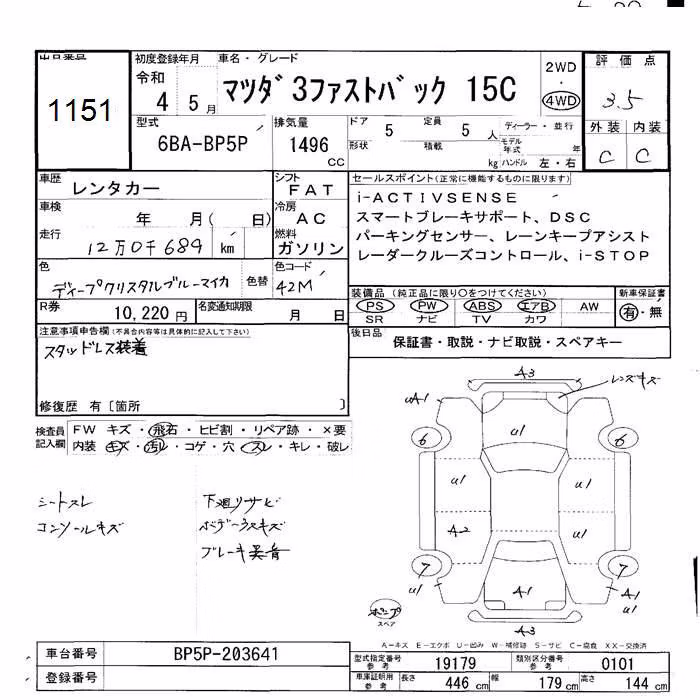 出品番号
1151
初度登録年月
令和
4 5月
車名・グレード
マツダ 3ファストバック 15C
2WD
・
4WD
評価点
3.5
外装 内装
C C
型式
6BA-BP5P
排気量
1496
cc
ドア 5 定員 5 人
形状 積載 kg
ディーラー・並行
モデル年式 年
ハンドル 左・右
車歴 レンタカー
シフト FAT
車検 年 月( 日)
冷房 AC
走行 12万0千689 km
燃料 ガソリン
セールスポイント(正常に機能するものに限ります)
i-ACTIVSENSE
スマートブレーキサポート、DSC
パーキングセンサー、レーンキープアシスト
レーダークルーズコントロール、i-STOP
色 ディープクリスタルブルーマイカ
色替
色コード 42M
装備品(純正品に限り○をつけてください)
PS PW ABS エアB AW
SR ナビ TV カワ
新車保証書
有・無
R券 10,220円
名変通知期限 月 日
後日品
保証書・取説・ナビ取説・スペアキー
注意事項申告欄(不具合内容等は具体的に記入して下さい)
スタッドレス装着
修復歴 有〔箇所 〕
検査員記入欄
FW キズ・飛石・ヒビ割・リペア跡・×要
内装 キズ・汚れ・コゲ・穴・スレ・キレ・破レ
シートスレ
コンソールキズ
下廻リサビ
ボデークスキズ
ブレーキ異音
A3
レンズキズ
UA1
U1
6
6
U1
U1
A2
U1
7
7
U1
A1
A1
U1
A3
ポンプ
スペア
A―キズ E―エクボ U―凹み W―補修跡 S―サビ C―腐食 XX―交換済
車台番号 BP5P-203641
登録番号
型式指定番号 参考 19179
類別区分番号 参考 0101
車庫証明用 参考 長さ 446 cm 幅 179 cm 高さ 144 cm